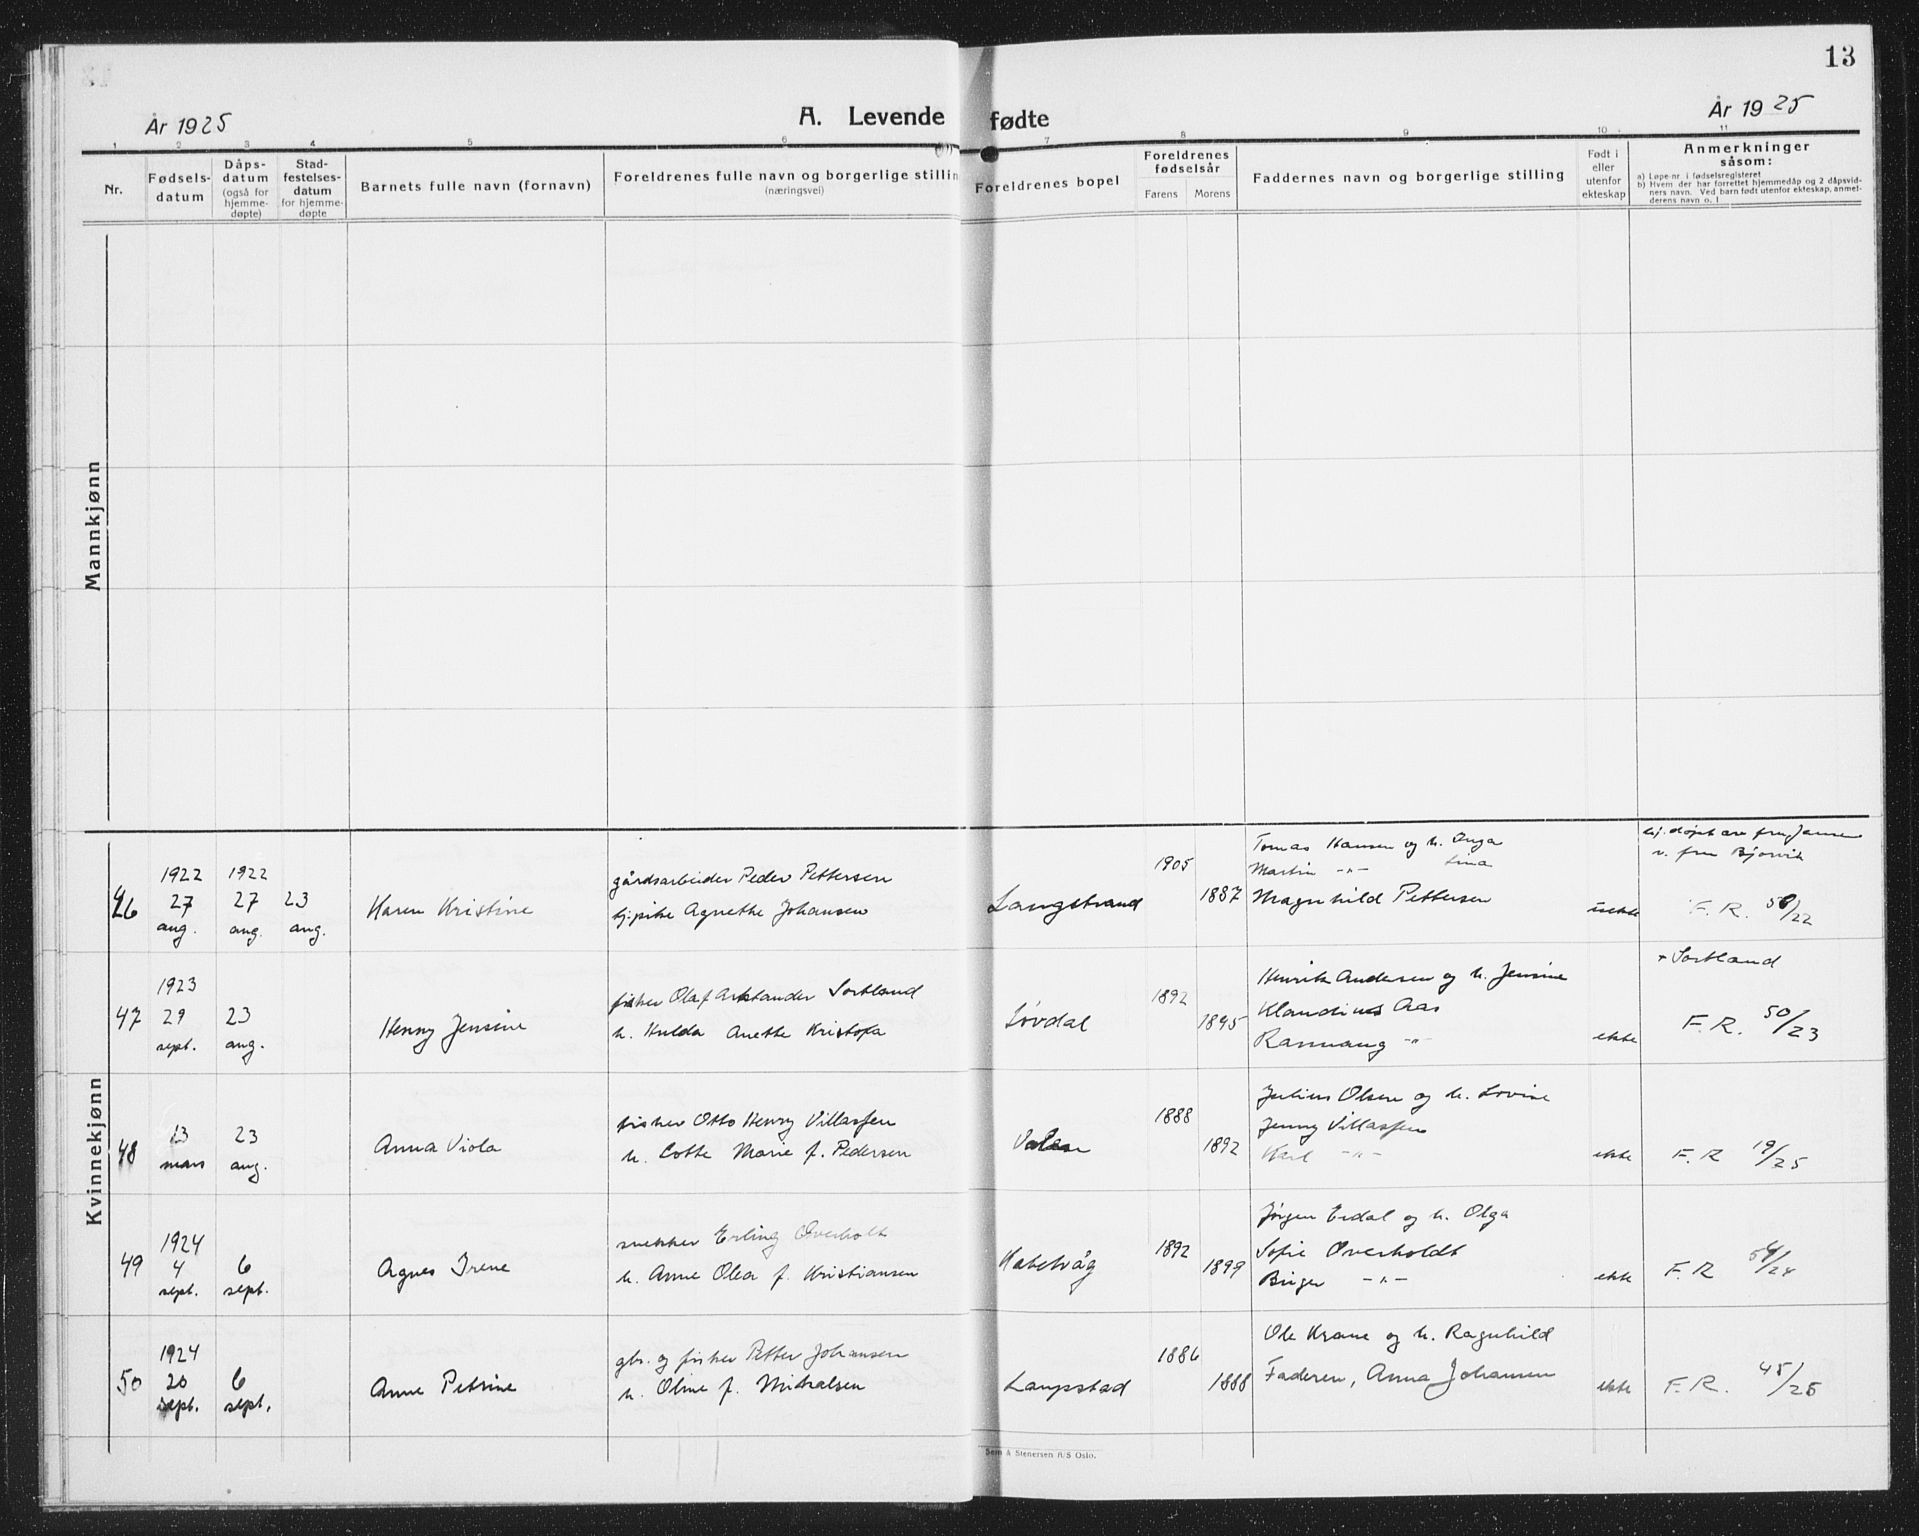 13
År 1925
A. Levende fødte
År 1925
1 2 3 4 5 6 7 8 9 10 11
Nr.
Fødsels-
datum
Dåps-
datum
(også for
hjemme-
døpte)
Stad-
festelses-
datum
for hjemme-
døpte
Barnets fulle navn (fornavn)
Foreldrenes fulle navn og borgerlige stillin
(næringsvei)
Foreldrenes bopel
Foreldrenes
fødselsår
Farens Morens
Faddernes navn og borgerlige stilling
Født i
eller
utenfor
ekteskap
Anmerkninger
såsom:
a) Løpe-nr. i fødselsregisteret
b) Hvem der har forrettet hjemmedåp og 2 dåpsvid-
ners navn. Ved barn født utenfor ekteskap, anmel-
derens navn o. l
Mannkjønn
Kvinnekjønn
46
1922
27
aug.
1922
27
aug.
23
aug.
Karen Kristine
gårdsarbeider Peder Pettersen
pike Agnethe Johansen
Langstrand
1905
1887
Tomas Hansen og h. Inga
Martin -"- Lina
Magnhild Pettersen
uekte
hj. døpt av fru Jansen
v. fru Bjørvik
F. R. 58/22
47
1923
29
sept.
23
aug.
Henny Jensine
fisker Olaf Arktander Sortland
h. Hulda Anette Kristofa
Løvdal
1892
1895
Henrik Andersen og h. Jensine
Klaudius Aas
Rannaug -"-
ekte
+ Sortland
F. R. 50/23
48
13
mars
23
aug.
Anna Viola
fisker Otto Henry Villassen
h. Lotte Marie f. Pedersen
1888
1892
Julius Olsen og h. Lovise
Jenny Villassen
Karl -"-
ekte
F. R 19/25
49
1924
4
sept.
6
sept.
Agnes Irene
snekker Erling Overholt
h. Anne Olea f. Kristiansen
Kabelvåg
1892
1899
Jørgen Erdal og h. Olga
Sofie Overholdt
Birger -"-
ekte
F. R 54/24
50
1924
20
sept.
6
sept.
Anne Petrine
gbr. og fisker Petter Johansen
h. Oline f. Mikalsen
Laupstad
1886
1888
Ole Krane og h. Ragnhild
Faderen, Anna Johansen
ekte
F. R. 45/25
Sem & Stenersen A/S Oslo.